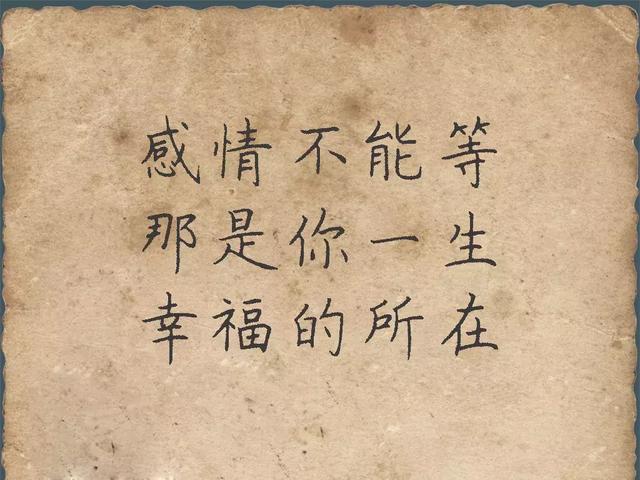 感情不能等
那是你一生
幸福的所在